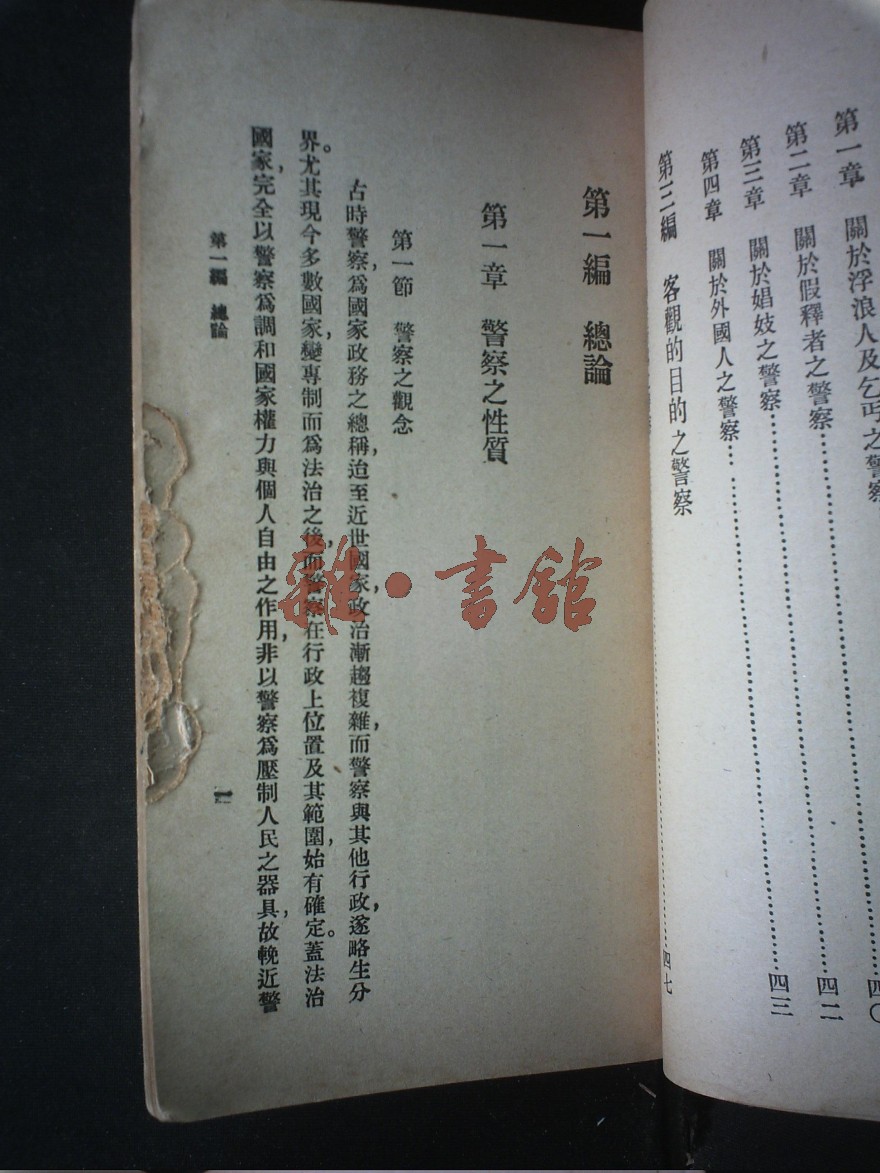 第一章　關於浮浪人及乞丐之警察 四〇
第二章　關於假釋者之警察……四二
第三章　關於娼妓之警察……四三
第四章　關於外國人之警察……四七
第三編　客觀的目的之警察
第一編　總論
第一章　警察之性質
第一節　警察之觀念
古時警察，爲國家政務之總稱，迨至近世國家，政治漸趨複雜，而警察與其他行政，遂略生分
界。尤其現今多數國家，變專制而爲法治之後，而警察在行政上位置及其範圍，始有確定。蓋法治
國家，完全以警察爲調和國家權力與個人自由之作用，非以警察爲壓制人民之器具，故輓近警
第一編　總論
一
雜·書館